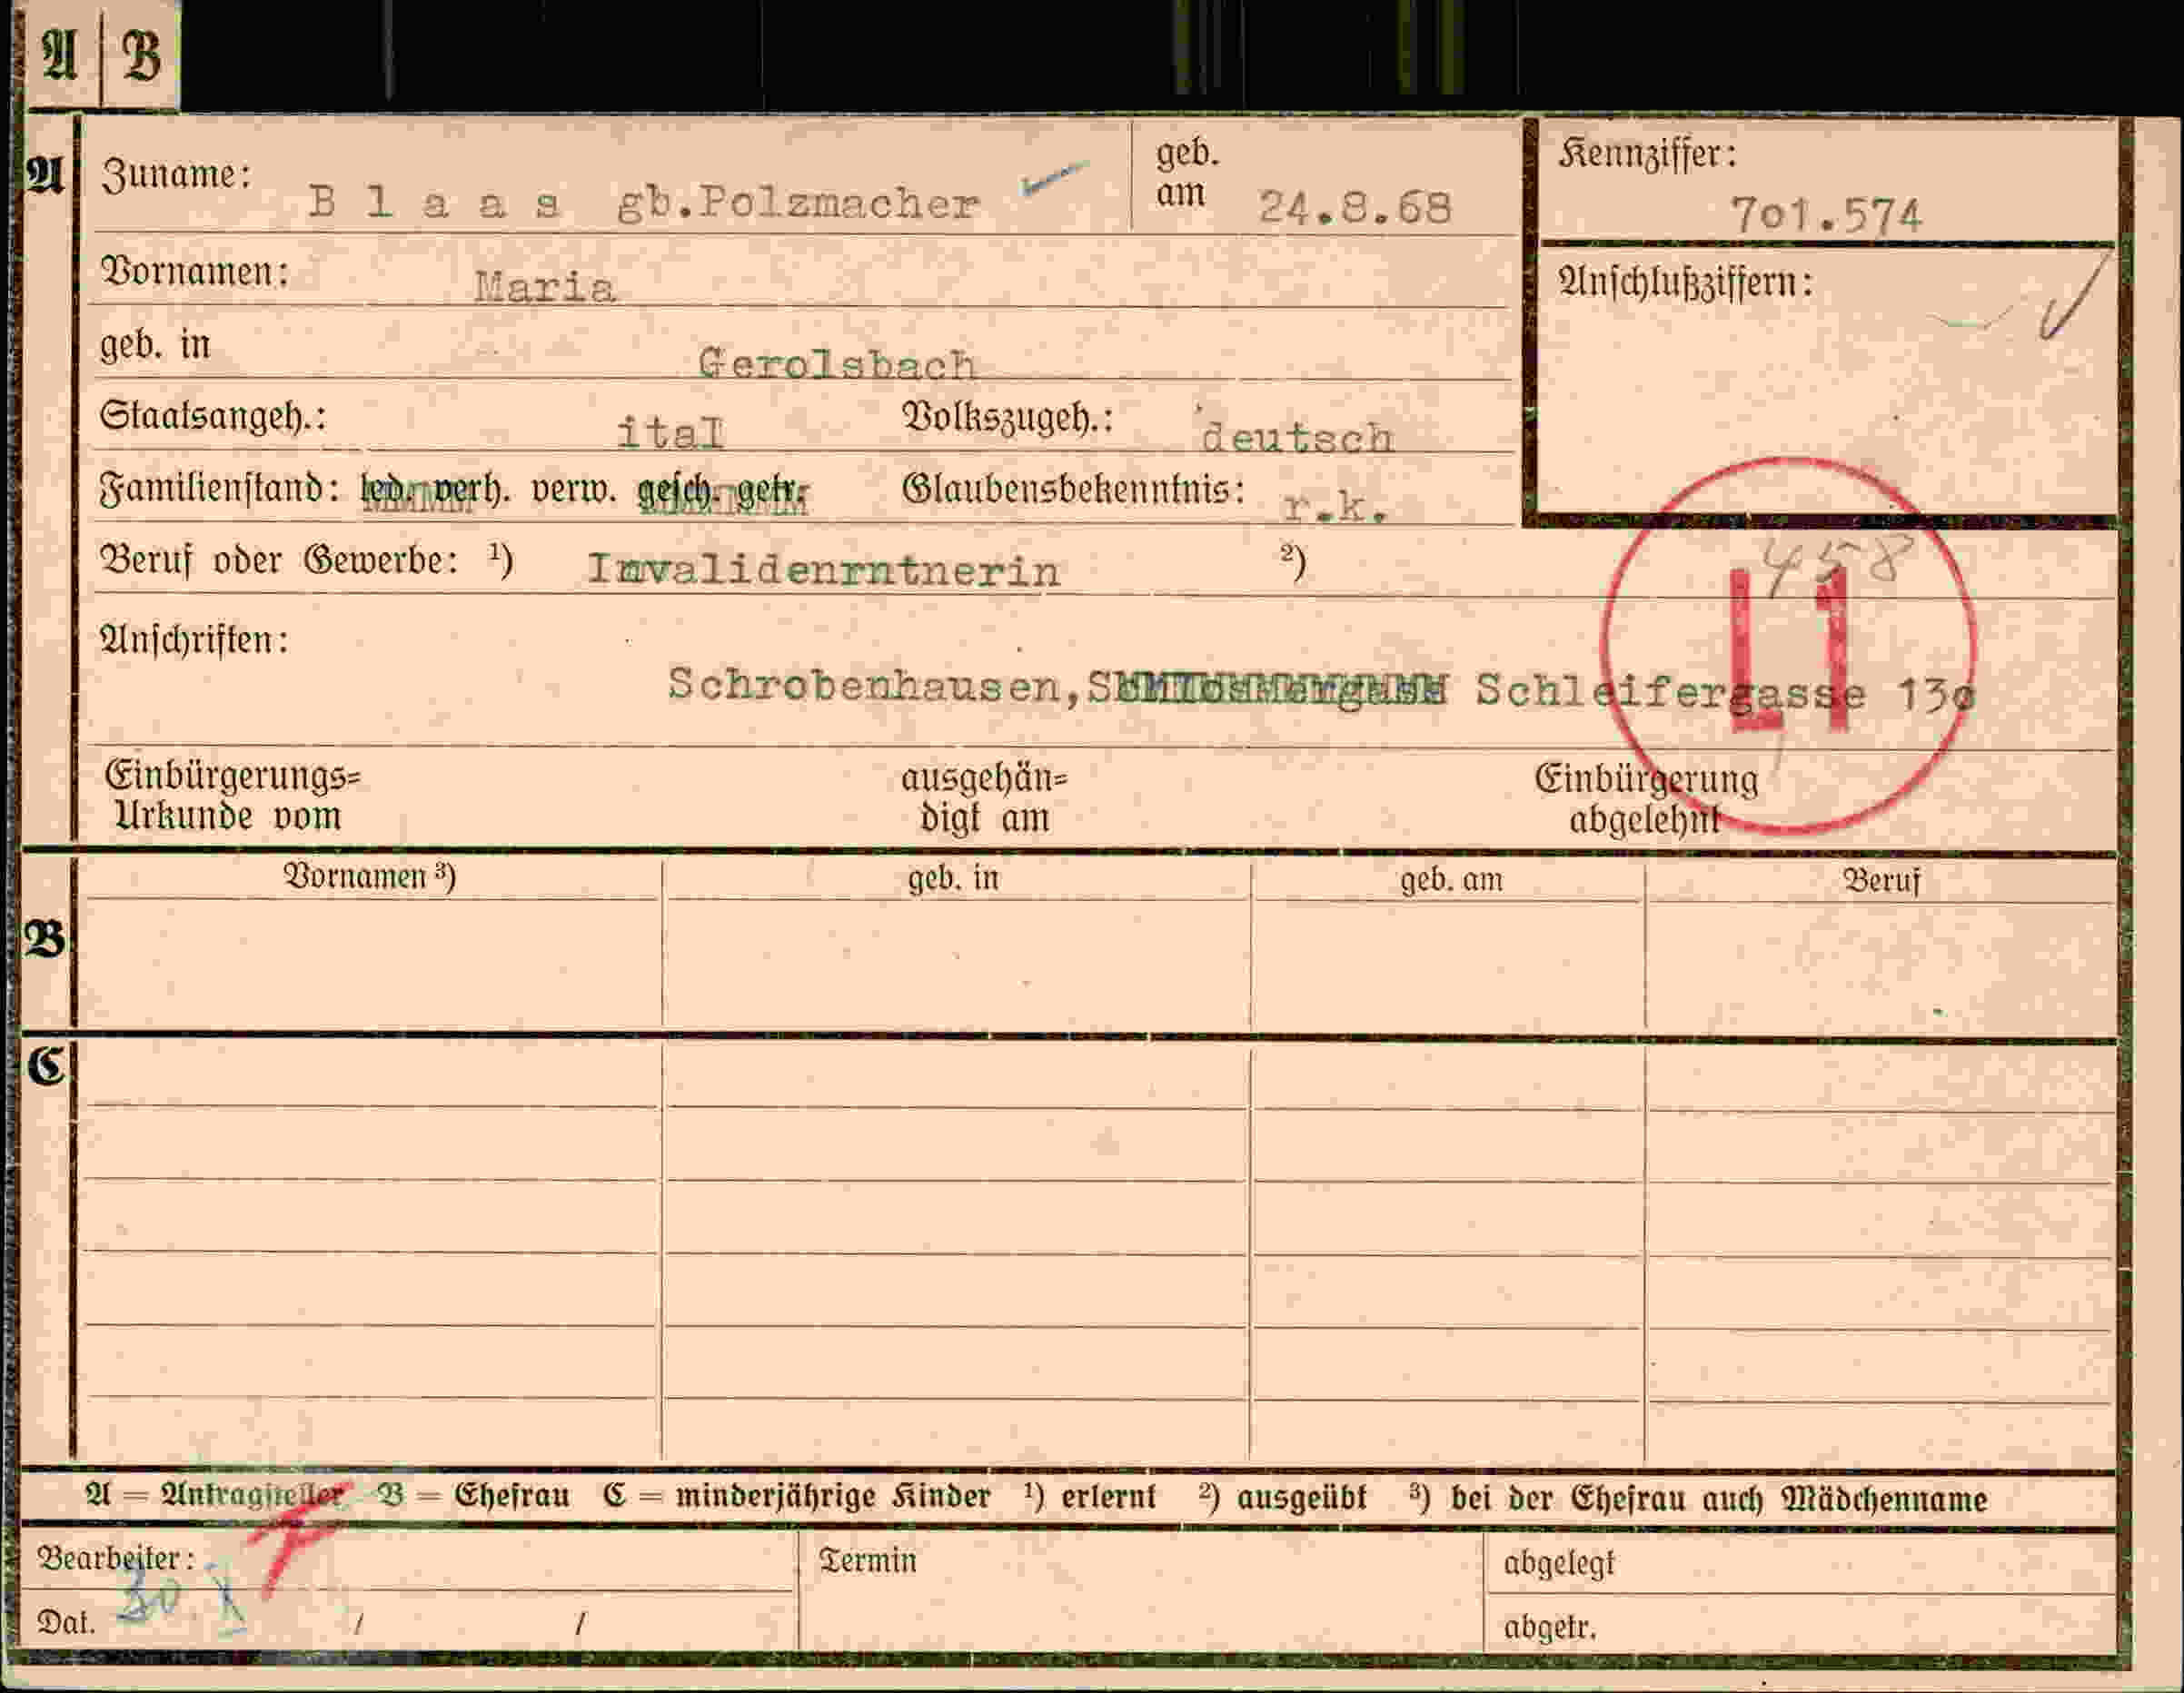 A | B
A Zuname: Blaas gb.Polzmacher geb. am 24.8.68 Kennziffer: 7o1.574
Vornamen: Maria Anschlußziffern:
geb. in Gerolsbach
Staatsangeh.: ital Volkszugeh.: deutsch
Familienstand: led. verh. verw. gesch. getr. Glaubensbekenntnis: r.k.
458
Beruf oder Gewerbe: ¹) Invalidenrntnerin ²)
L1
Anschriften:
Schrobenhausen, Schleifergasse 13o
Einbürgerungs= ausgehän= Einbürgerung
Urkunde vom digt am abgelehnt
Vornamen ³) geb. in geb. am Beruf
B
C
A = Antragsteller B = Ehefrau C = minderjährige Kinder ¹) erlernt ²) ausgeübt ³) bei der Ehefrau auch Mädchenname
Bearbeiter: Termin abgelegt
Dat. 30. X / / abgetr.